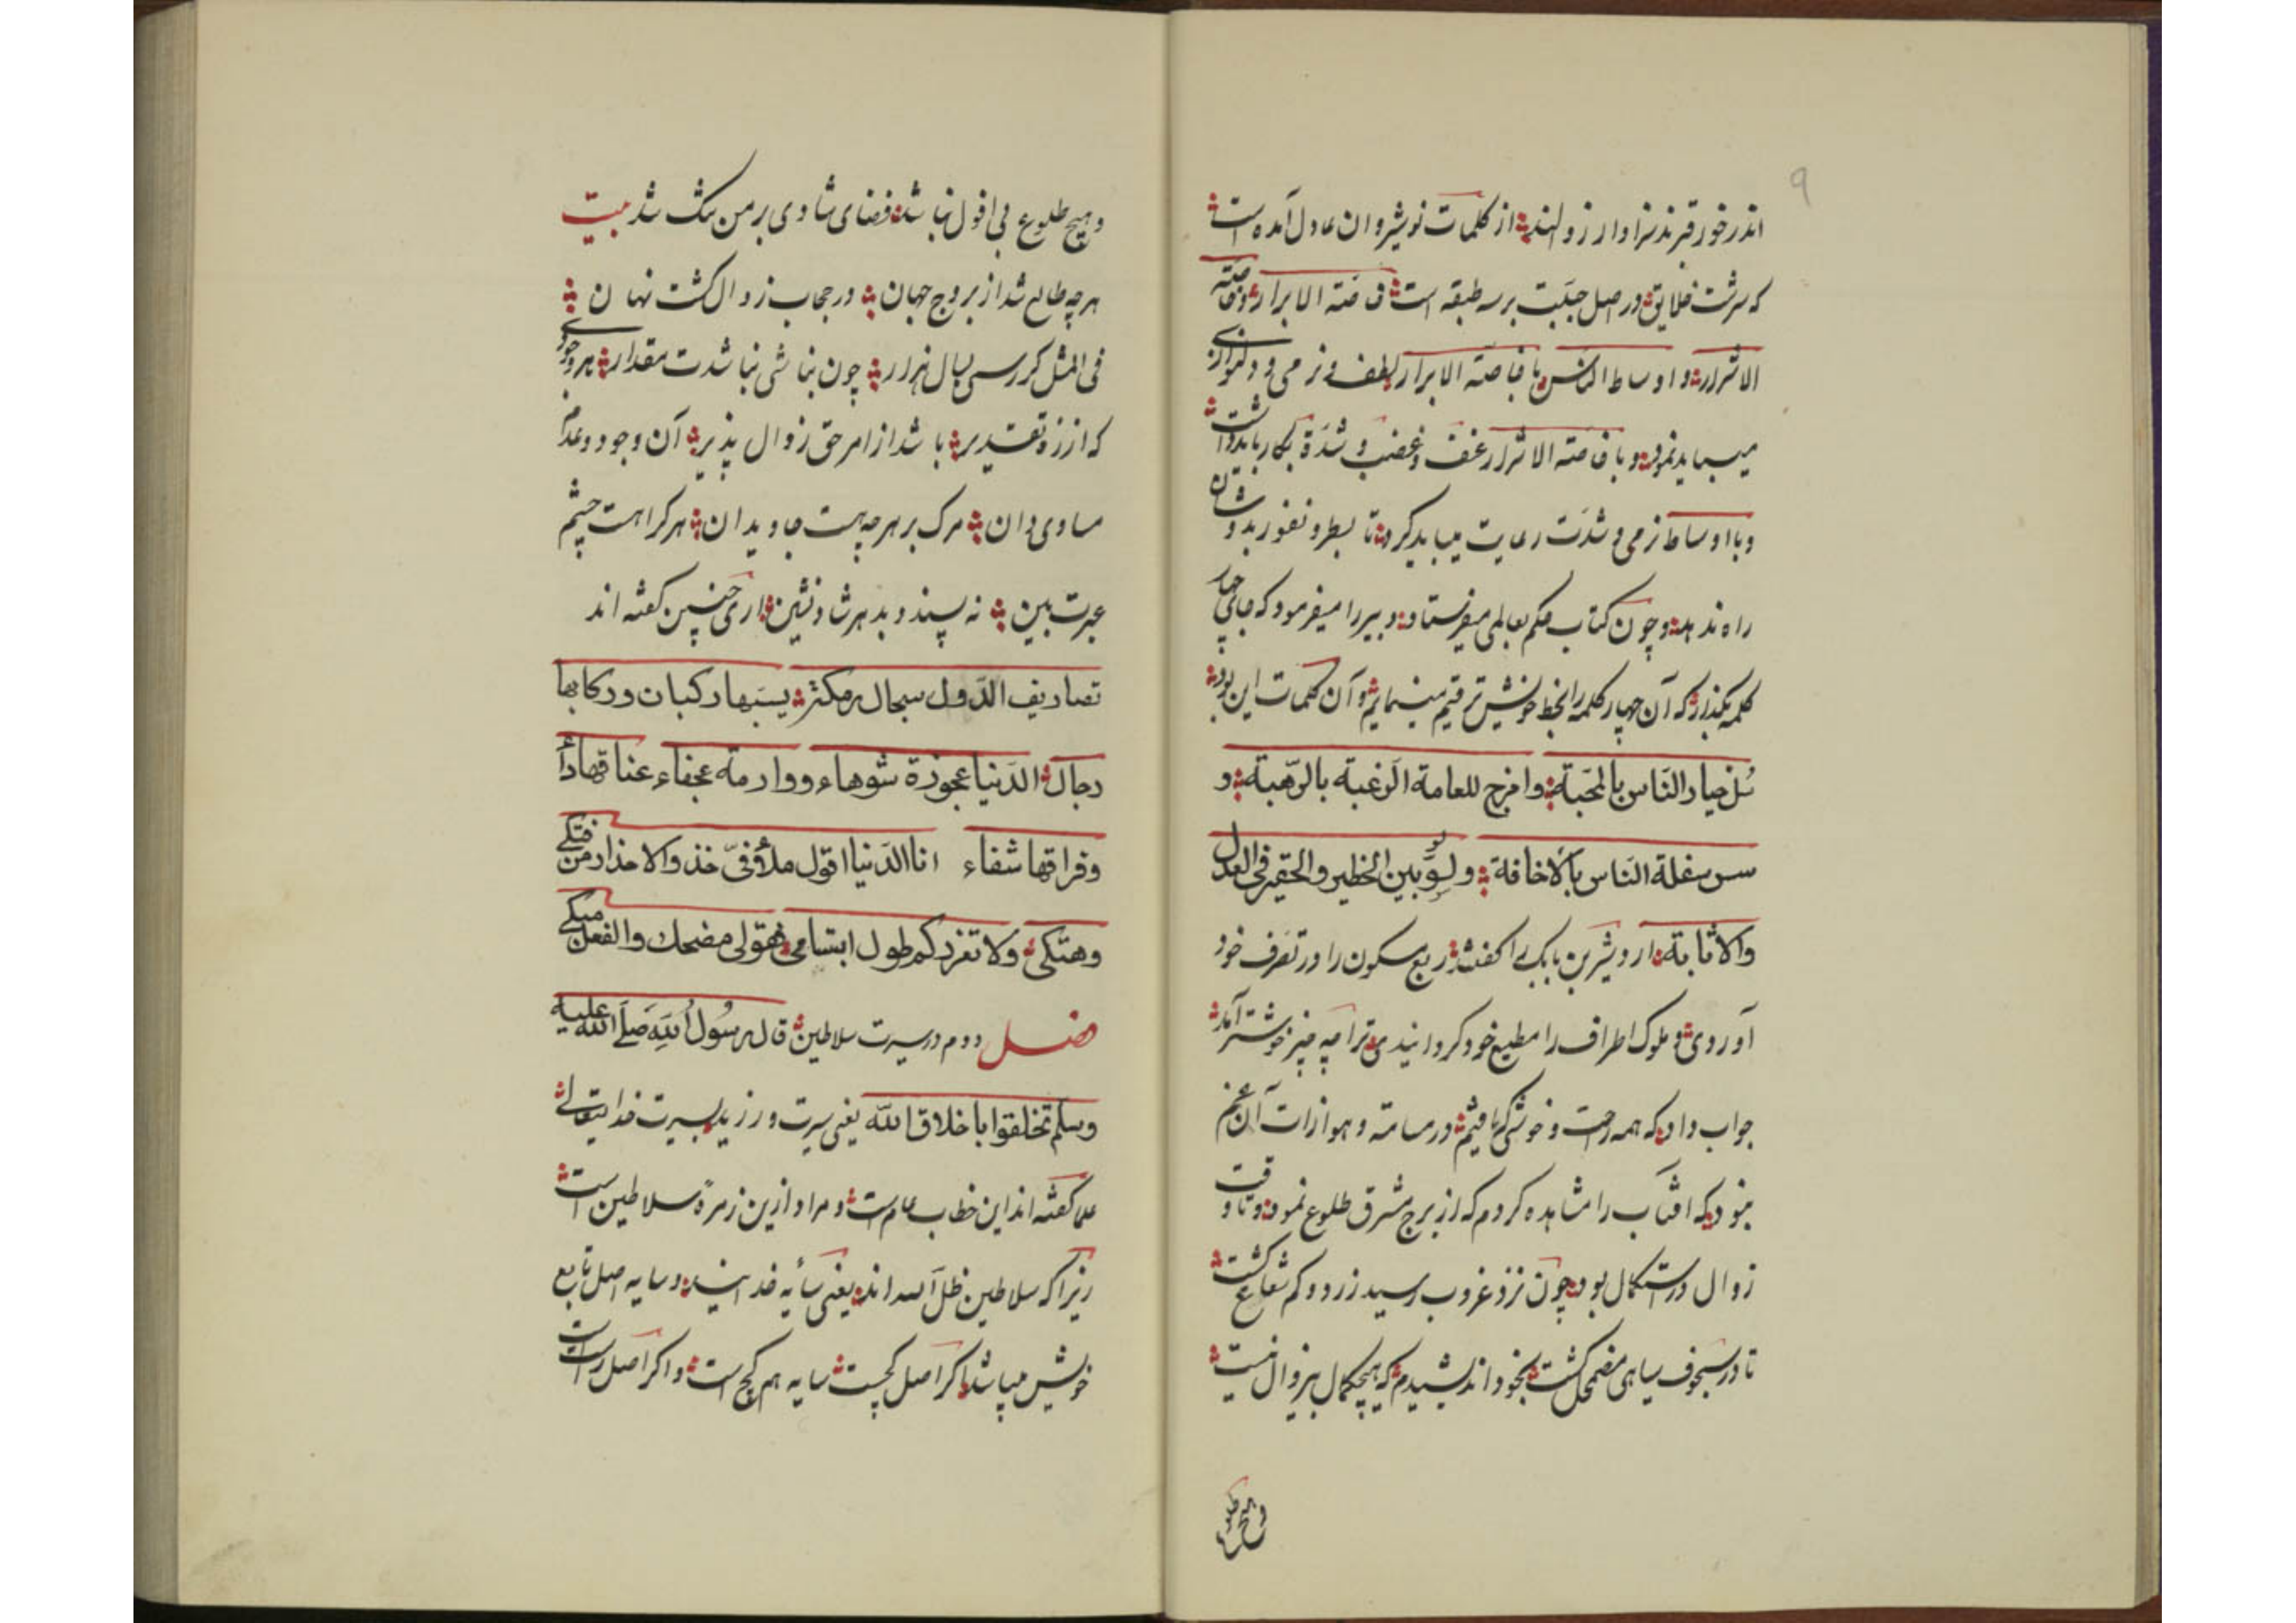 ۹
اندر خور قرند سزاوار زولند از کلمات نوشیروان عادل آمده است
که سرشت خلایق در اصل جبلت بر سه طبقه است خاصّته الابرار و خاصّته
الاشرار و اوساط الناس با خاصّته الابرار لطف و نرمی و دلنوازی
میباید نمود و با خاصّته الاشرار عنف و غضب و شدّة بکار باید داشت
و با اوساط نرمی و شدّت رعایت میباید کرد تا بطر و نفور بدیشان
راه ندهد و چون کتاب حکم بعاملی میفرستاد دبیر را میفرمود که جای چهار
کلمه بگذار که آن چهار کلمه را بخط خویش ترقیم مینمایم و آن کلمات این بود
سُل خیار النّاس بالمحبّة وامزج للعامة الرّغبة بالرّهبة و
سس سفلة النّاس بالاخافة وسوّ بین الخطیر والحقیر فی العدل
والاثابة اردشیر بن بابک را گفتند ربع مسکون را در تصرّف خود
آوردی و ملوک اطراف را مطیع خود گردانیدی ترا چه چیز خوشتر آمد
جواب داد که همه راحت و خوشی که یافتیم در مسامته و موازات آن غم
نبود که افتاب را مشاهده کردم که از برج مشرق طلوع نمود و تا وقت
زوال در استکمال بود چون نزد غروب رسید زرد و کم شعاع گشت
تا در سجوف سیاهی مضمحل گشت بخود اندیشیدم که هیچ کمال بیزوال نیست
و هیچ طلوع
و هیچ طلوع بی افول نباشد فضای شادی بر من تنگ شد بیت
هرچه طالع شد از بروج جهان در حجاب زوال گشت نهان
فی المثل گر رسی بسال هزار چون نباشی نباشدت مقدار هر وجودی
که از ره تقدیر باشد از امر حق زوال پذیر آن وجود و عدم
مساوی دان مرگ بر هرچه هست جاویدان هر کرا هست چشم
عبرت بین نه پسندد بدهر شاد نشین اری چنین گفته اند
تصاریف الدّول سجال مکثر یسبها رکبان ورکابها
رجال الدّنیا عجوزة شوهاء ووارمة عجفاء عناقها داء
وفراقها شفاء انا الدّنیا اقول ملأ فیّ خذوالاحذار من فتکی
وهتکی ولا تغررکم طول ابتسامی فقولی مضحک والفعل مبکی
فصل دوم در سیرت سلاطین قال رسول الله صلّی الله علیه
وسلم تخلقوا باخلاق الله یعنی سیرت ورزید بسیرت خدایتعالی
علما گفته اند این خطاب عام است و مراد ازین زمرهٔ سلاطین است
زیرا که سلاطین ظلّ الله اند یعنی سایه خدایند و سایه اصل تابع
خویش میباشد اگر اصل کجست سایه هم کج است و اگر اصل راست